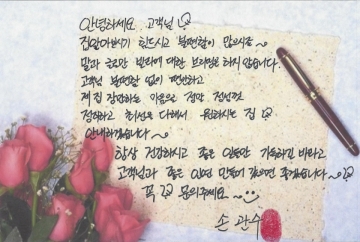 안녕하세요 고객님
집알아보시기 힘드시고 불편함이 많으시죠~
말과 글로만 번리에 대한 브리핑은 하지 않습니다.
고객님 불편함 없이 편안하고
제 집 장만하는 마음으로 정말 정성껏
정직하고 최선을 다해서 원하시는 집
안내하겠습니다~
항상 건강하시고 좋은 일들만 가득하길 바라고
고객님과 좋은 인연 만들어 갔으면 좋겠습니다~
꼭 문의주세요~
손 관수